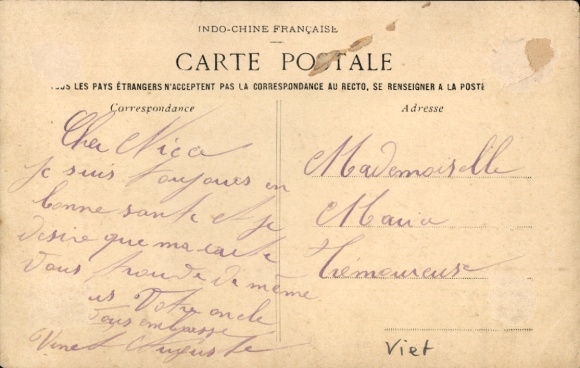 INDO-CHINE FRANÇAISE
CARTE POSTALE
TOUS LES PAYS ÉTRANGERS N'ACCEPTENT PAS LA CORRESPONDANCE AU RECTO, SE RENSEIGNER A LA POSTE
Correspondance
Adresse
Cher Niece
je suis toujours en
bonne sante et je
desire que ma carte
vous trouve de même
Votre oncle
vous embrasse
Auguste
Mademoiselle
Maria
Viet